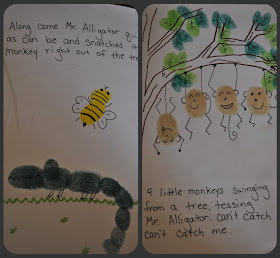 Along came Mr. Alligator
as can be and snatched
monkey right out of the
4 little monkeys swinging
from a tree, teasing
Mr. Alligator, can't catch
can't catch me.